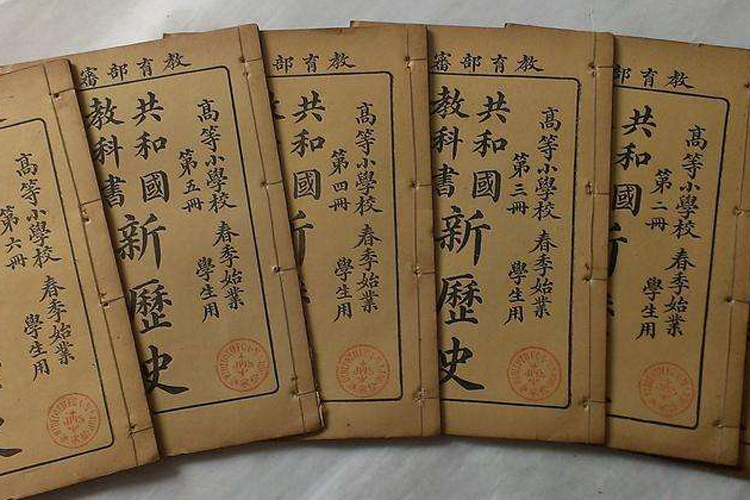 教育部
高等小學校 春季始業
第二冊 學生用
共和國
教育部審
高等小學校 春季始業
第三冊 學生用
共和國
教科書
新歷史
教育部
高等小學校 春季始業
第四冊 學生用
共和國
教育部審
高等小學校 春季始業
第五冊 學生用
共和國
教科書
新歷史
高等小學校 春季始業
第六冊 學生用